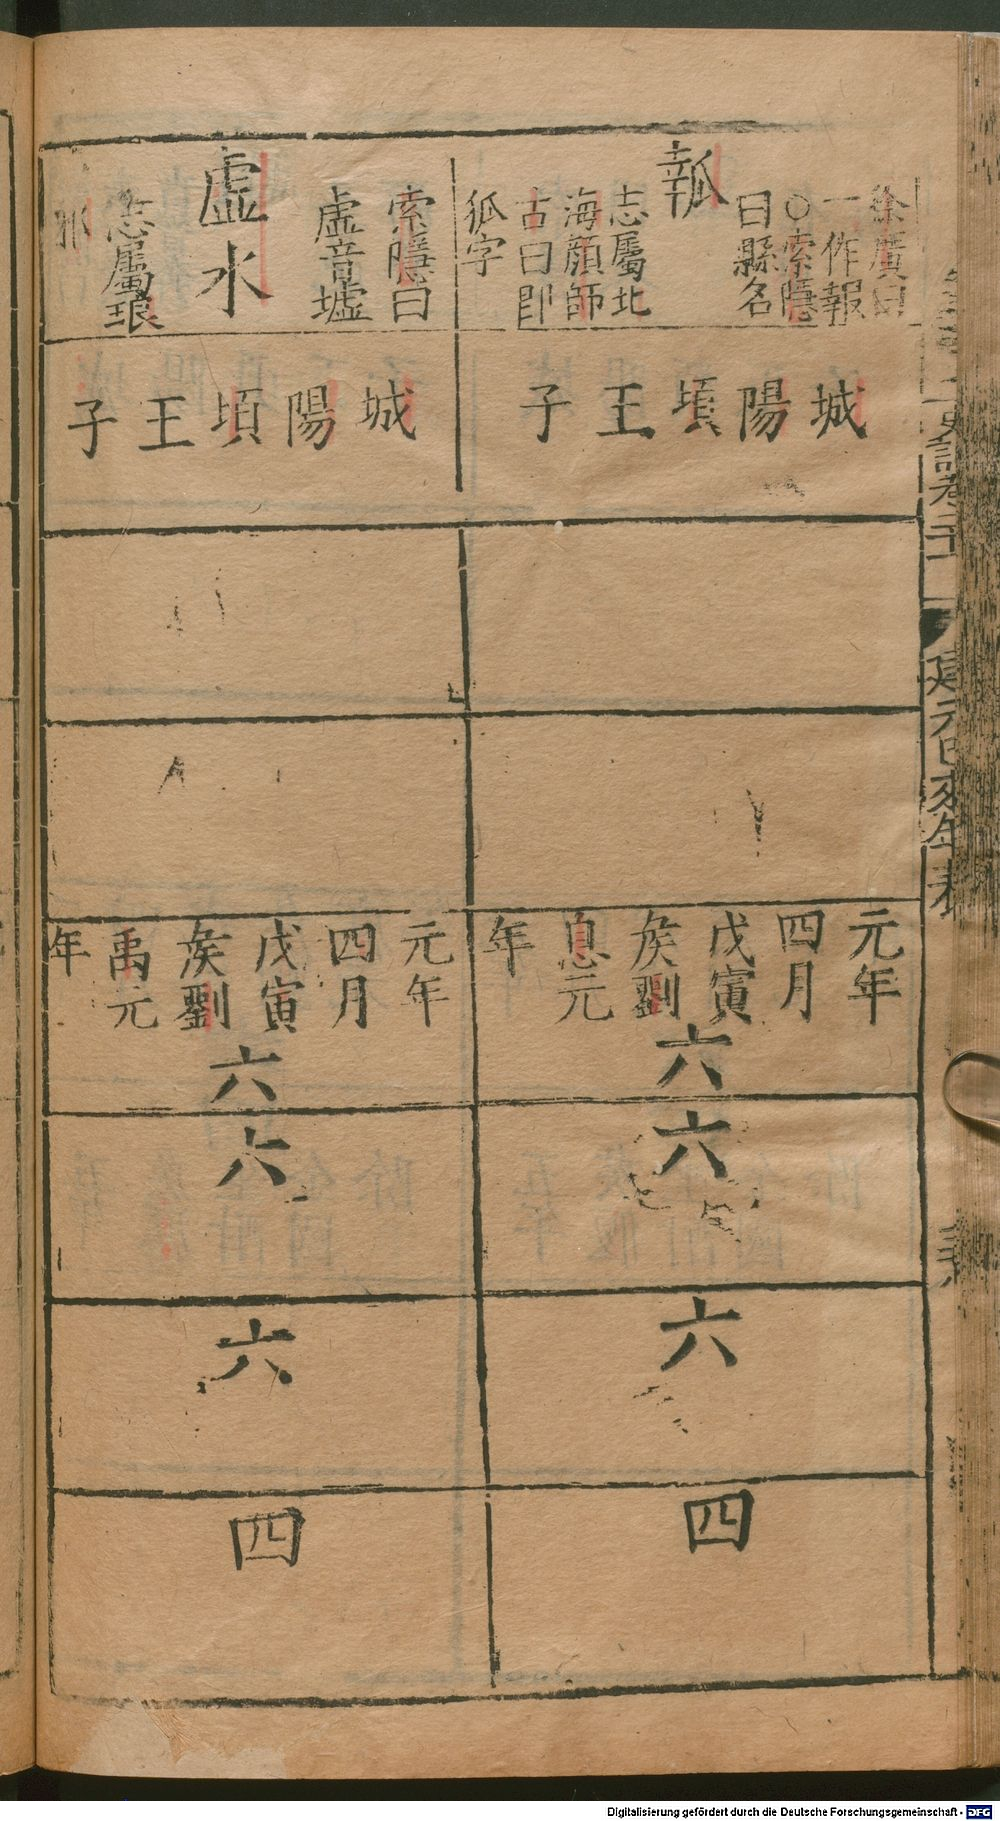 徐廣曰
一作報
○索隱
曰縣名
瓡
志屬北
海顏師
古曰即
狐字
城陽頃王子
元年
四月
戊寅
矦劉
息元
年
六
六
六
四
索隱曰
虛音墟
虛水
志屬琅
邪
城陽頃王子
元年
四月
戊寅
矦劉
禹元
年
六
六
六
四
建元已來年表
Digitalisierung gefördert durch die Deutsche Forschungsgemeinschaft - DFG